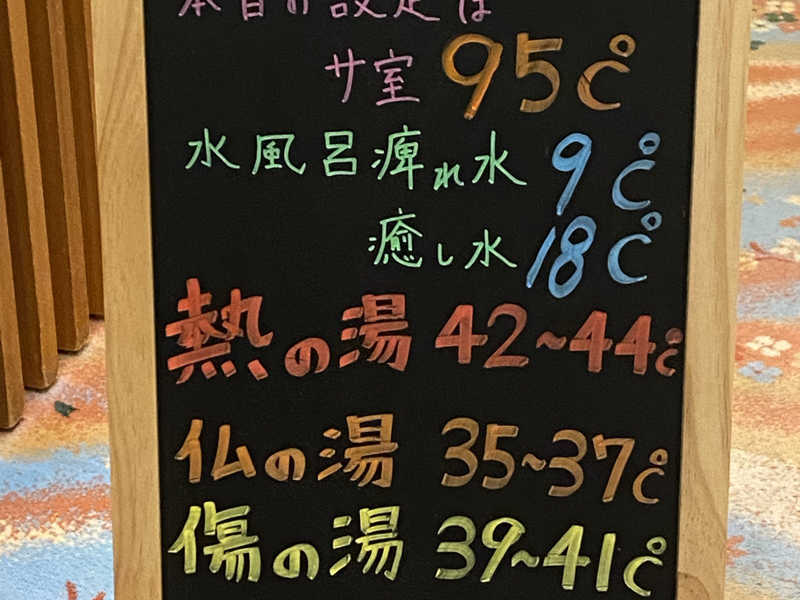 本日の設定は
サ室 95℃
水風呂痺れ水 9℃
癒し水 18℃
熱の湯 42~44℃
仏の湯 35~37℃
傷の湯 39~41℃